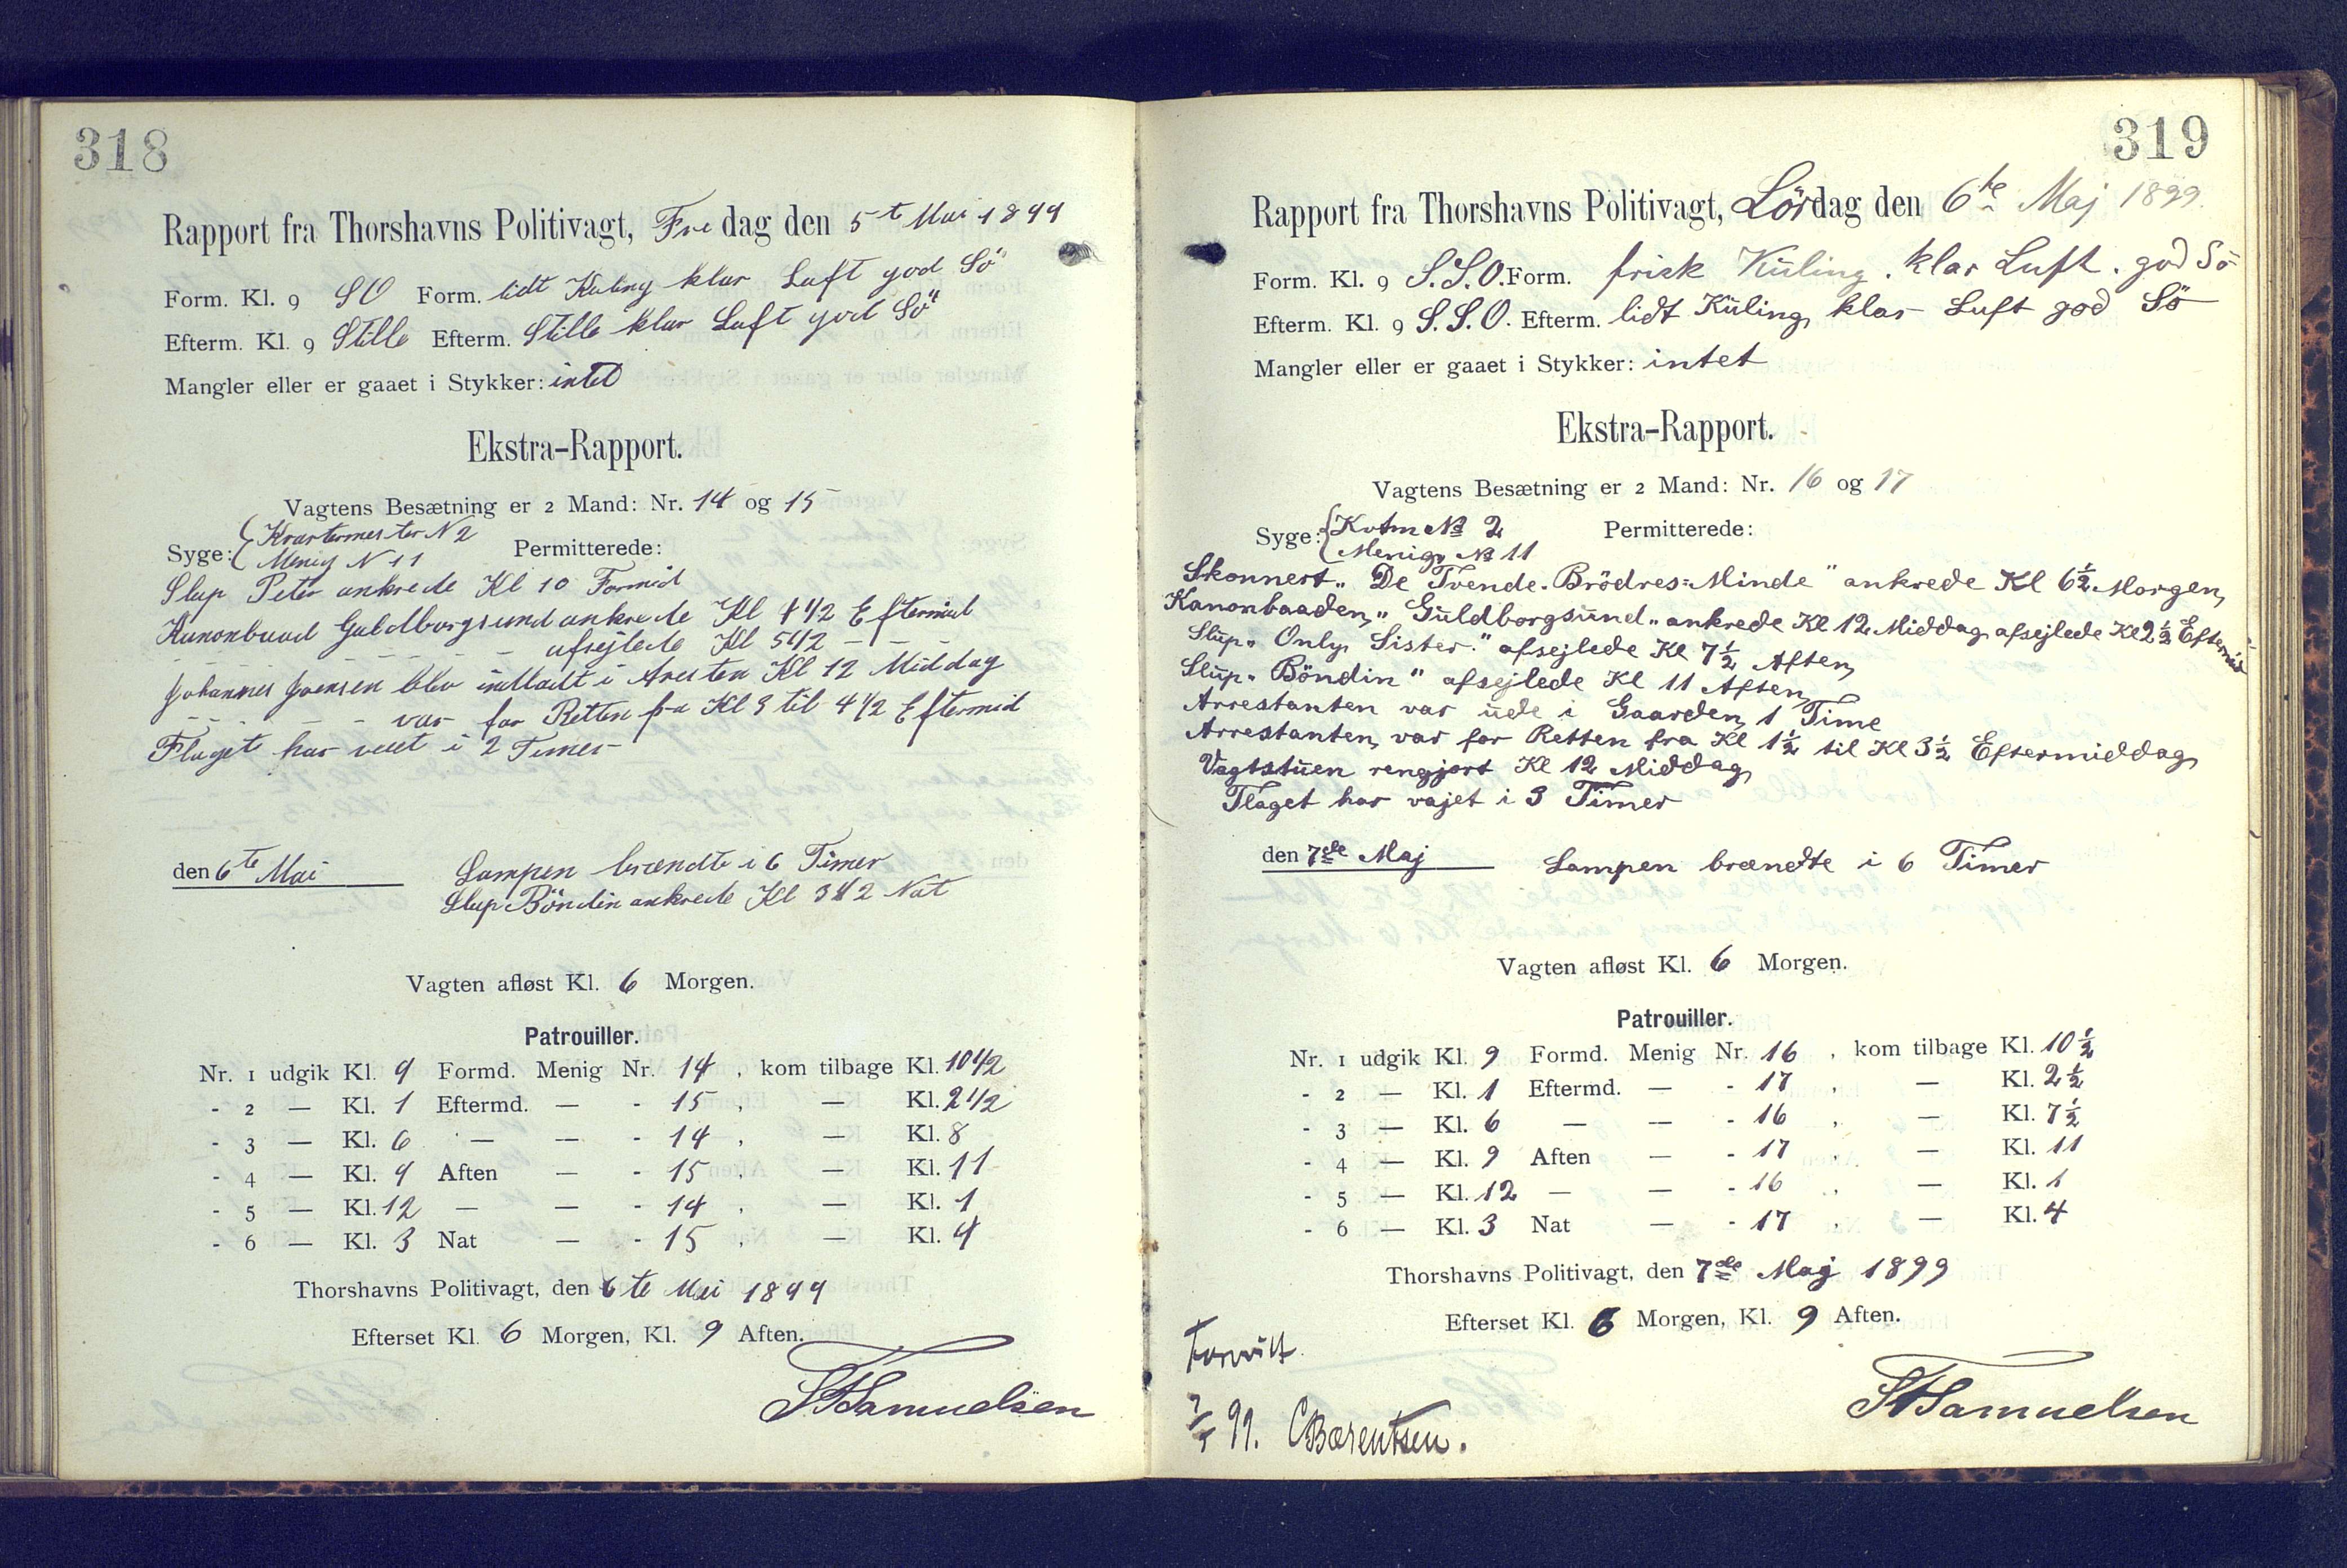 318
Rapport fra Thorshavns Politivagt, Fredag den 5te Mai 1899
Form. Kl. 9 SO Form. lidt Kuling klar Luft god Sö
Efterm. Kl. 9 Stille Efterm. Stille klar Luft god Sö
Mangler eller er gaaet i Stykker: intet
Ekstra-Rapport.
Vagtens Besætning er 2 Mand: Nr. 14 og 15
Syge: { Kvartermester N 2 Permitterede:
Menig N 11
Slup Peter ankrede Kl 10 Formid
Kanonbaad Guldborgsund ankrede Kl 4 1/2 Eftermid
- - - - - afsejlede Kl 5 1/2 - - -
Johannes Joensen blev indladt i Aresten Kl 12 Middag
- - - - - var for Retten fra Kl 3 til 4 1/2 Eftermid
Flaget har veiet i 2 Timer
den 6te Mai Lampen brændte i 6 Timer
Slup Böndin ankrede Kl 3 1/2 Nat
Vagten afløst Kl. 6 Morgen.
Patrouiller.
Nr. 1 udgik Kl. 9 Formd. Menig Nr. 14, kom tilbage Kl. 10 1/2
- 2 — Kl. 1 Eftermd. — - 15, — Kl. 2 1/2
- 3 — Kl. 6 — — - 14, — Kl. 8
- 4 — Kl. 9 Aften — - 15, — Kl. 11
- 5 — Kl. 12 — — - 14, — Kl. 1
- 6 — Kl. 3 Nat — - 15, — Kl. 4
Thorshavns Politivagt, den 6te Mai 1899
Efterset Kl. 6 Morgen, Kl. 9 Aften.
Samuelsen
319
Rapport fra Thorshavns Politivagt, Lördag den 6te Maj 1899.
Form. Kl. 9 S.S.O. Form. frisk Kuling. klar Luft. god Sö
Efterm. Kl. 9 S.S.O. Efterm. lidt Kuling klar Luft god Sö
Mangler eller er gaaet i Stykker: intet
Ekstra-Rapport.
Vagtens Besætning er 2 Mand: Nr. 16 og 17
Syge: { Kvtm № 2 Permitterede:
Menig № 11
Skonnert „De Tvende-Brödres-Minde“ ankrede Kl 6 1/2 Morgen,
Kanonbaaden, „Guldborgsund„ ankrede Kl 12 Middag afsejlede Kl 2 1/2 Eftermid
Slup „Only Sister.“ afsejlede Kl 7 1/2 Aften,
Slup „Böndin“ afsejlede Kl 11 Aften,
Arrestanten var ude i Gaarden, 1 Time
Arrestanten, var for Retten fra Kl 1 1/2 til Kl 3 1/2 Eftermiddag,
Vagtstuen rengjort Kl 12 Middag,
Flaget har vajet i 3 Timer
den 7de Maj Lampen brændte i 6 Timer
Vagten afløst Kl. 6 Morgen.
Patrouiller.
Nr. 1 udgik Kl. 9 Formd. Menig Nr. 16, kom tilbage Kl. 10 1/2
- 2 — Kl. 1 Eftermd. — - 17, — Kl. 2 1/2
- 3 — Kl. 6 — — - 16, — Kl. 7 1/2
- 4 — Kl. 9 Aften — - 17, — Kl. 11
- 5 — Kl. 12 — — - 16, — Kl. 1
- 6 — Kl. 3 Nat — - 17, — Kl. 4
Thorshavns Politivagt, den 7de Maj 1899
Efterset Kl. 6 Morgen, Kl. 9 Aften.
Forevist
7/5 99. CBærentsen.
Samuelsen